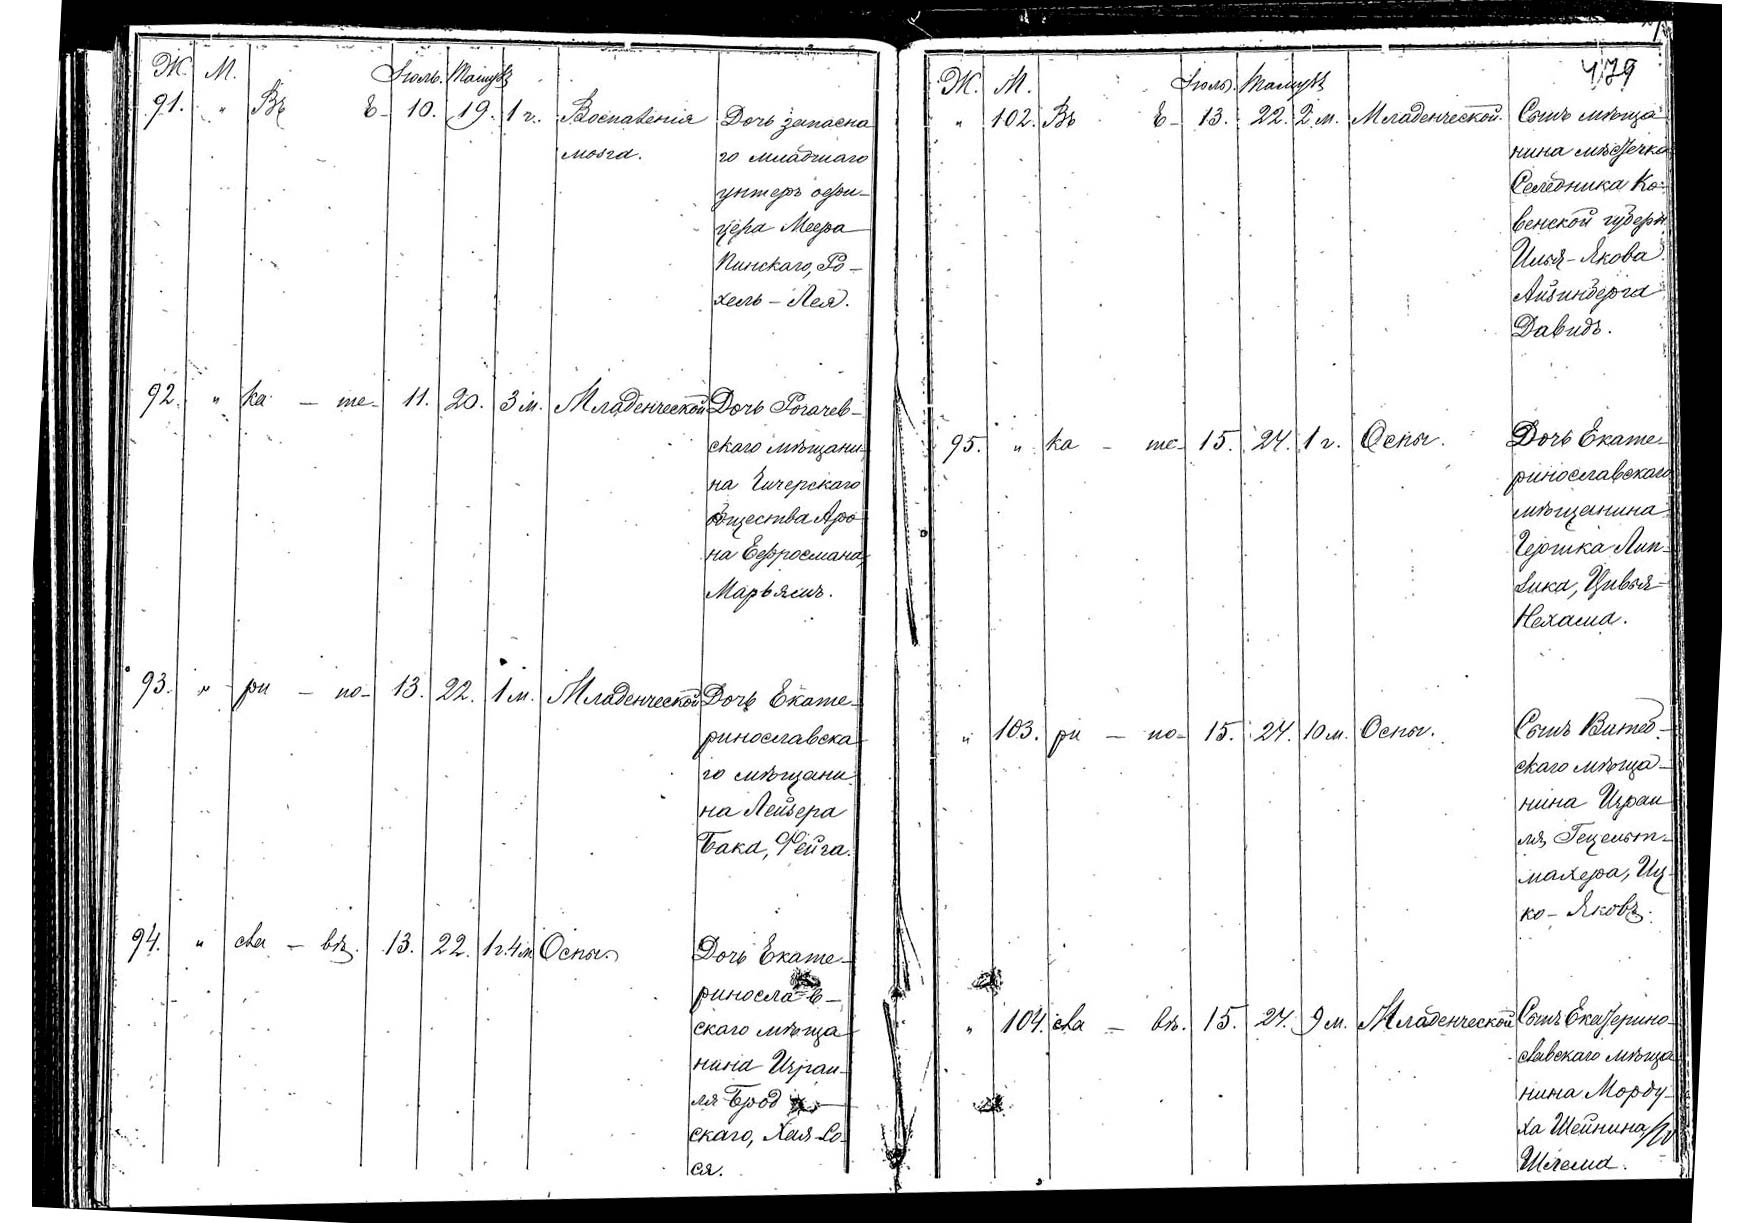 Ж. М. Іюль. Тамузъ
91. " Въ Е- 10. 19. 1 г. Воспаленія Дочь запасна
мозга. го младшаго
унтеръ офи-
цера Меера
Пинскаго, Ро-
хель-Лея.
92. " ка - те- 11. 20. 3 м. Младенческой Дочь Рогачев-
скаго мѣщани-
на Чичерскаго
общества Аро
на Ефросмана,
Марьямъ.
93. " ри - но- 13. 22. 1 м. Младенческой Дочь Екате-
ринославска-
го мѣщани-
на Лейзера
Бака, Фейга.
94. " сла - вѣ. 13. 22. 1 г. 4 м. Оспы. Дочь Екате-
ринослав-
скаго мѣща-
нина Израи-
ля Брод-
скаго, Хая-Со-
ся.
479
Ж. М. Іюль. Тамузъ
" 102. Въ Е- 13. 22. 2 м. Младенческой. Сынъ мѣща-
нина мѣстечка
Ко-
венской губерн.
Илья-Якова
Айзинберга
Давидъ.
95. " ка - те- 15. 24. 1 г. Оспы. Дочь Екате-
ринославскаго
мѣщанина
Гершка Лип-
Цивья-
Нехама.
" 103. ри - но- 15. 24. 10 м. Оспы. Сынъ Витеб-
скаго мѣща-
нина Израи
ля Гецельт-
махера, Иц-
ко-Яковъ.
" 104. сла - вѣ. 15. 24. 9 м. Младенческой Сынъ Екатерино-
славскаго мѣща
нина Морду-
ха Шейнина
Шлема.